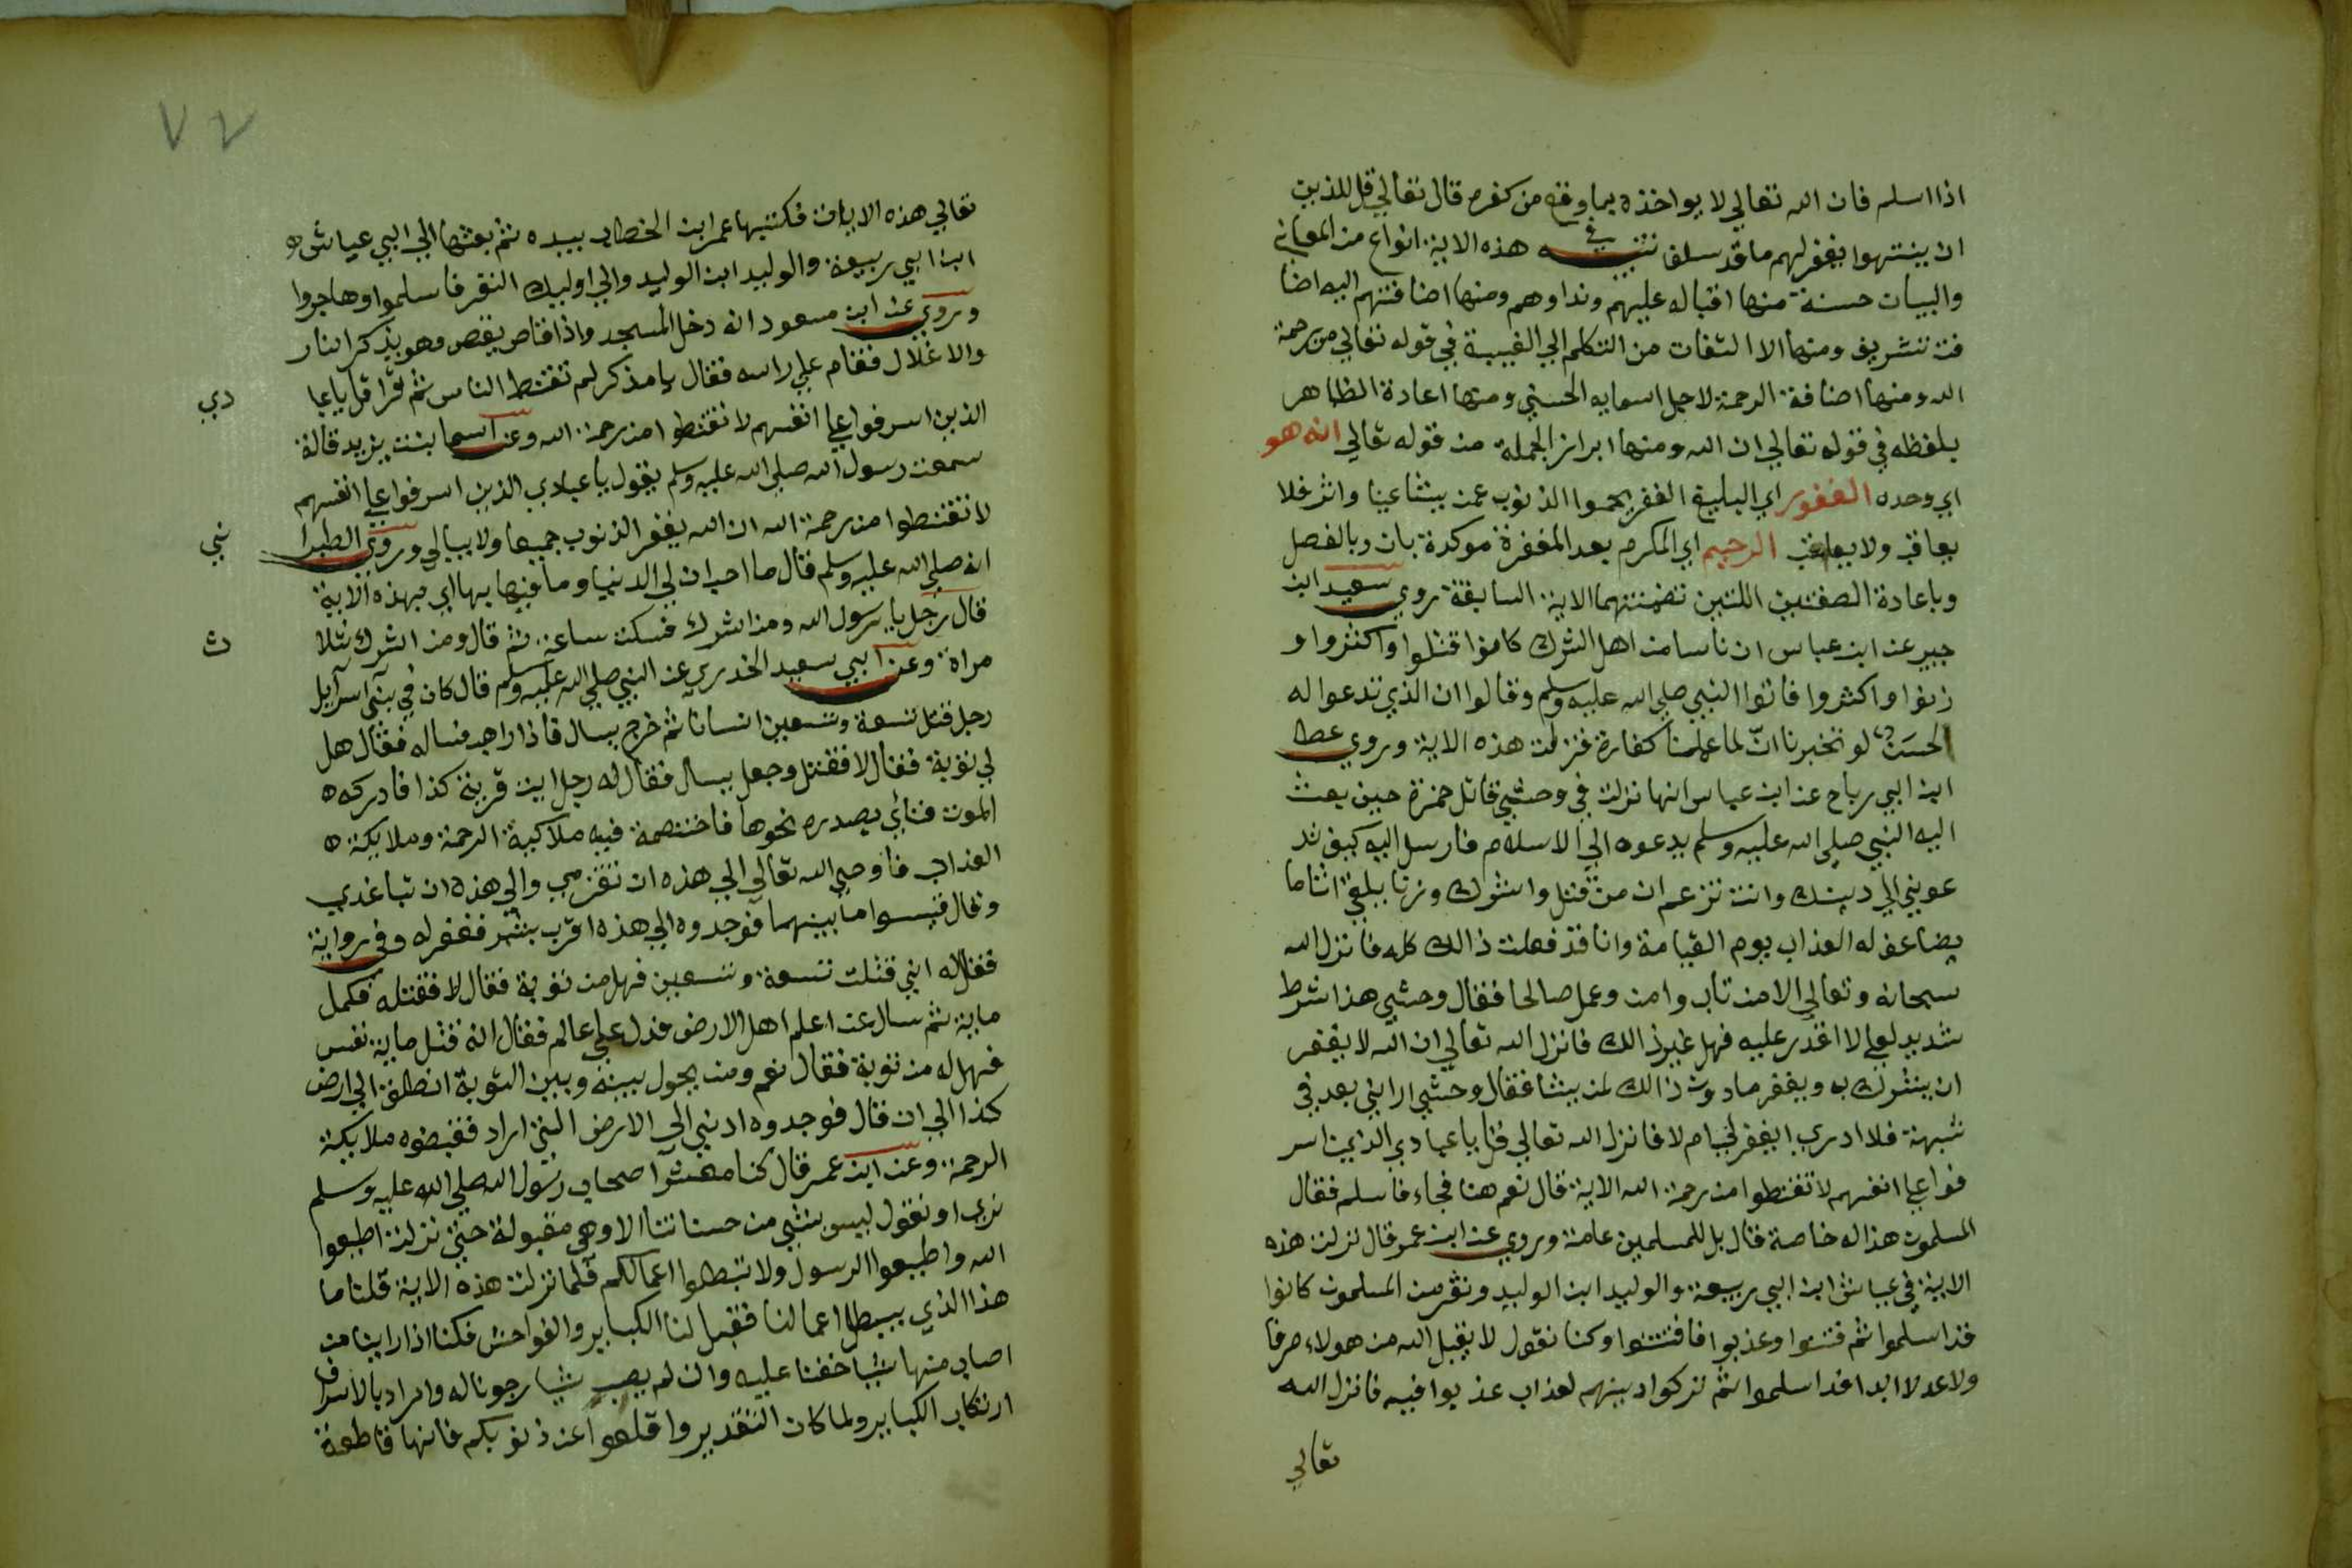 اذا اسلم فان الله تعالي لا يواخذه بما وقع من كفره قال تعالي قل للذين
ان ينتهوا يغفر لهم ما قد سلف تنبيه في هذه الاية انواع من المعاني
والبيان حسنة منها اقباله عليهم ونداوهم ومنها اضافتهم اليه اضا
فت تشريف ومنها الا التفات من التكلم الي الغيبة في قوله تعالي من رحمة
الله ومنها اضافة الرحمة لاجل اسمايه الحسني ومنها اعادة الظاهر
بلفظه في قوله تعالي ان الله ومنها ابراز الجملة من قوله تعالي انه هو
اي وحده الغفور اي البليغ الغفر يمحوا الذنوب عمن يشا عينا واثر فلا
يعاقب ولا يعاتب الرحيم اي المكرم بعد المغفرة موكدة بان وبالفصل
وباعادة الصفتين اللتين تضمنتهما الاية السابقة روي سعيد ابن
جبير عن ابن عباس ان ناسا من اهل الشرك كانوا قتلوا واكثروا و
زنوا واكثروا فاتوا النبي صلي الله عليه وسلم وقالوا ان الذي تدعوا له
لحسن لو تخبرنا انّ لما عملنا كفارة فنزلت هذه الاية وروي عطا
ابن ابي رباح عن ابن عباس انها نزلت في وحشي قاتل حمزة حين بعث
اليه النبي صلي الله عليه وسلم يدعوه الي الاسلام فارسل اليه كيف تد
عوني الي دينك وانت تزعم ان من قتل واشرك وزنا يلقي اثاما
يضاعف له العذاب يوم القيامة وانا قد فعلت ذالك كله فانزل الله
سبحانه وتعالي الا من تاب وامن وعمل صالحا فقال وحشي هذا شرط
شديد لعلي لا اقدر عليه فهل غير ذالك فانزل الله تعالي ان الله لا يغفر
ان يشرك به ويغفر مادون ذالك لمن يشا فقال وحشي اراني بعد في
شبهة فلا ادري ايغفر لي ام لا فانزل الله تعالي قل يا عبادي الذين اسر
فوا علي انفسهم لا تقنطوا من رحمة الله الاية قال نعم هنا فجاء فاسلم فقال
المسلمون هذا له خاصة قال بل للمسلمين عامة وروي عن ابن عمر قال نزلت هذه
الاية في عياش ابن ابي ربيعة والوليد ابن الوليد ونفر من المسلمون كانوا
قد اسلموا ثم فتنوا وعذبوا فافتتنوا وكنا نقول لا يقبل الله من هولاء صرفا
ولا عدلا ابدا قد اسلموا ثم تركوا دينهم لعذاب عذبوا فيه فانزل الله
تعالي
٧٢
تعالي هذه الايات فكتبها عمر ابن الخطاب بيده ثم بعثها الي ابي عياش ه
ابن ابي ربيعة والوليد ابن الوليد والي اوليك النفر فاسلموا وهاجروا
وروي عن ابن مسعود انه دخل المسجد واذا قاص يقص وهو يذكر النار
والاغلال فقام علي راسه فقال يا مذكر لم تقنط الناس ثم قرا قل ياعبا
دي
الذين اسرفوا علي انفسهم لا تقنطوا من رحمة الله وعن اسما بنت يزيد قالة
سمعت رسول الله صلي الله عليه وسلم يقول يا عبادي الذين اسرفوا علي انفسهم
لا تقنطوا من رحمة الله ان الله يغفر الذنوب جميعا ولا يبالي وروي الطبرا
ني
انه صلي الله عليه وسلم قال ما احب ان لي الدنيا وما فيها بها اي بهذه الاية
قال رجل يا رسول الله ومن اشرك فسكت ساعة ثم قال ومن اشرك ثلا
ث
مراة وعن ابي سعيد الخدري عن النبي صلي الله عليه وسلم قال كان في بني اسرآيل
رجل قتل تسعة وتسعين انسانا ثم خرج يسال فاذا راهب فساله فقال هل
لي توبة فقال لا فقتل وجعل يسال فقال له رجل ايت قرية كذا فادركه ه
الموت فناي بصدره نحوها فاختصمة فيه ملاكية الرحمة وملايكة ه
العذاب فاوحي الله تعالي الي هذه ان تقربي والي هذه ان تباعدي
وقال قيسوا ما بينهما فوجدوه الي هذه اقرب بشبر فغفر له وفي رواية
فقال له اني قتلت تسعة وتسعين فهل من توبة فقال لا فقتله فكمل
ماية ثم سال عن اعلم اهل الارض فدل علي عالم فقال انه قتل ماية نفس
فهل له من توبة فقال نعم ومن يحول بينه وبين التوبة انطلق الي ارض
كذا الي ان قال فوجدوه ادني الي الارض التي اراد فقبضوه ملايكة
الرحمة وعن ابن عمر قال كنا معشر اصحاب رسول الله صلي الله عليه وسلم
نري او نقول ليس بشي من حسناتنا الا وهي مقبولة حتي نزلت اطيعوا
الله واطيعوا الرسول ولا تبطلوا اعمالكم فلما نزلت هذه الاية قلنا ما
هذا الذي يبطل اعمالنا فقيل لنا الكباير والفواحش فكنا اذا راينا من
اصاب منها شيا خفنا عليه وان لم يصب شيا رجونا له واراد بالاسراف
ارتكاب الكباير ولما كان التقدير واقلعوا عن ذنوبكم فانها قاطعة